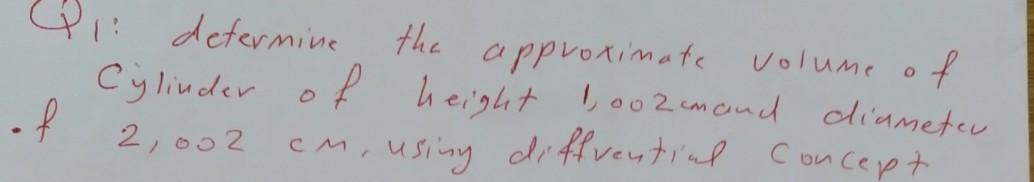 Q1: determine the approximate volume of
Cylinder of height 1,002 cm and diameter
of 2,002 cm, using diffvential Concept